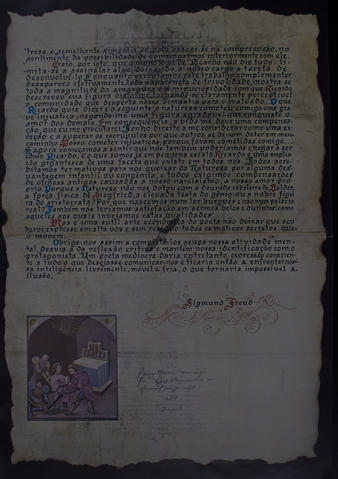 treza e semelhante simpatia só pode basear-se na compreensão, no
sentimento da possibilidade de comunarmos interiormente com ele.
Creio, por isto, que o monólogo de Ricardo não diz tudo: li-
mita-se a assinalar algo, deixando a nosso cargo a tarefa de
desenvolvê-lo. E enquanto executamos este trabalho complementar
desaparece efetivamente toda aparência de frivolidade, mostra-se
toda a magnitude da amargura e a minuciosidade com que Ricardo
descreveu sua figura disforme, tornando-se claramente perceptível
a comunidade que desperta nossa simpatia para o malvado. O que
Ricardo quis dizer é o seguinte: a natureza cometeu comigo uma gra-
ve injustiça, negando-me uma figura agradável que conquiste o
amor dos demais. Em consequência, a vida me deve uma compensação,
que eu me procurarei. Tenho direito a me considerar como uma ex-
ceção e a superar os escrúpulos por que outros se deixam deter em seu
caminho. Posso cometer injustiças, porque foram cometidas comigo.
E agora começamos a sentir que nós também poderíamos chegar a ser
como Ricardo, e o que somos já em pequena escala. Ricardo é uma amplia-
ção gigantesca de uma faceta que existe em todos nós. Todos acre-
ditamos ter motivos para nos queixar da Natureza por alguma des-
vantagem infantil ou congênita, e todos exigimos compensações
de ofensas anteriores inferidas a nosso narcisismo, a nosso amor pró-
prio. Porque a Natureza não nos dotou com a dourada cabeleira de Balder,
a força física de Siegfried, a elevada testa do gênio ou a nobre figu-
ra do aristocrata? Por que nascemos num lar burguês e não num palácio
real? Também nos daria satisfação em sermos belos e distintos como
aqueles aos quais invejamos estas qualidades.
Mas é uma sutil arte econômica do poeta não deixar que seu
herói expresse em alta voz e sem resíduo todos os motivos secretos que
o movem.
Obriga-nos assim a completá-los, ocupa nossa atividade men-
tal, desvia-a da reflexão crítica e mantém nossa identificação com o
protagonista. Um poeta medíocre daria, entretanto, expressão conscien-
te a tudo o que desejasse comunicar-nos e ficaria então a enfrentar nos-
sa inteligência livremente, móvel e fria, o que tornaria impossível a
ilusão.
Sigmund Freud